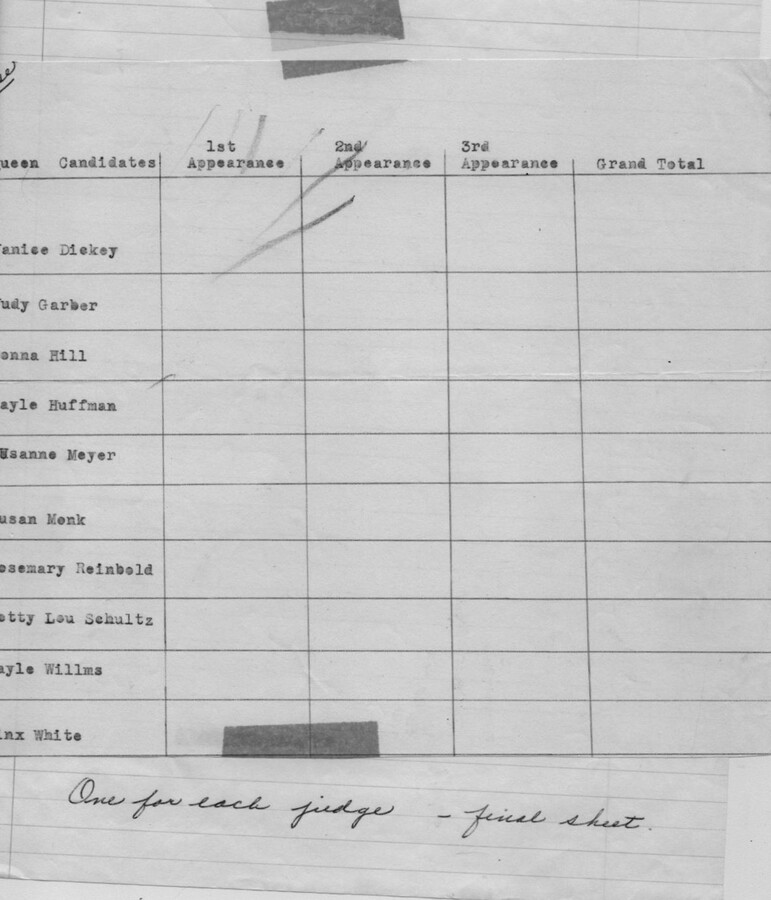 1st 2nd 3rd
ueen Candidates Appearance Appearance Appearance Grand Total
anice Dickey
udy Garber
onna Hill
ayle Huffman
usanne Meyer
usan Monk
osemary Reinbold
etty Lou Schultz
ayle Willms
inx White
One for each judge - final sheet.